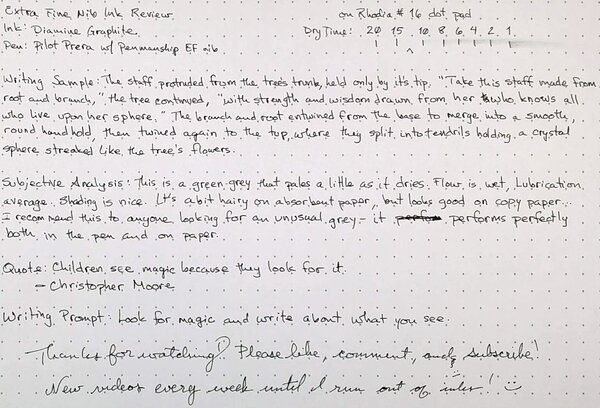 Extra Fine Nib Ink Review
on Rhodia # 16 dot pad
Ink: Diamine Graphite
Dry Time: 20 15 10 8 6 4 2 1
Pen: Pilot Prera w/ Penmanship EF nib
Writing Sample: The staff protruded from the tree's trunk, held only by it's tip. "Take this staff made from
root and branch," the tree continued, "with strength and wisdom drawn from her who knows all
who live upon her sphere." The branch and root entwined from the base to merge into a smooth,
round handhold, then twined again to the top, where they split into tendrils holding a crystal
sphere streaked like the tree's flowers.
Subjective Analysis: This is a green-grey that pales a little as it dries. Flow is wet, Lubrication
average. Shading is nice. It's a bit hairy on absorbent paper, but looks good on copy paper.
I recommend this to anyone looking for an unusual grey - it performs perfectly
both in the pen and on paper.
Quote: Children see magic because they look for it.
- Christopher Moore
Writing Prompt: Look for magic and write about what you see.
Thanks for watching! Please like, comment, and subscribe!
New videos every week until I run out of inks! :)